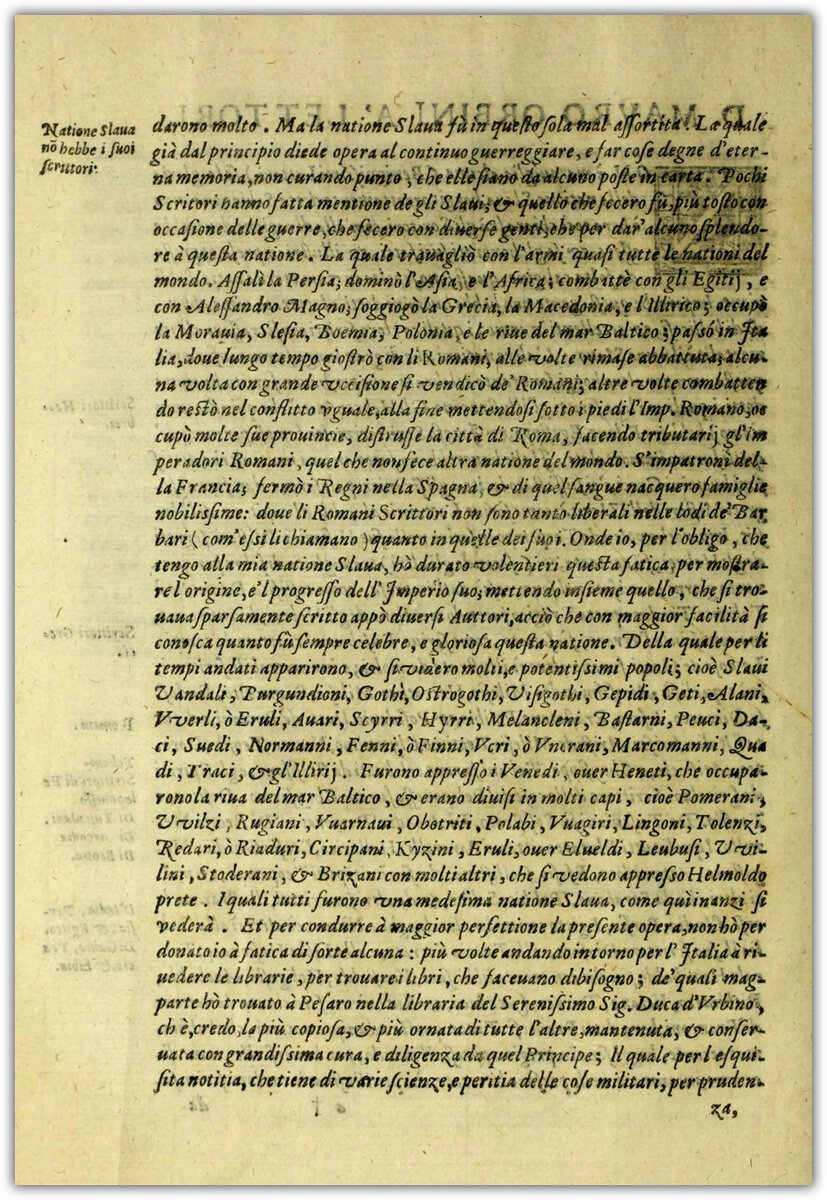 Natione Slaua
nō hebbe i ſuoi
ſcrittori.
darono molto. Ma la natione Slaua fù in queſto ſola mal aſſortita. La quale
già dal principio diede opera al continuo guerreggiare, e far coſe degne d'eter-
na memoria, non curando punto, che elle ſiano da alcuno poſte in carta. Pochi
Scritori hanno fatta mentione de gli Slaui; & quello che fecero fù, più toſto con
occaſione delle guerre, che fecero con diuerſe genti, che per dar' alcuno ſplendo-
re à queſta natione. La quale trauagliò con l'armi quaſi tutte le nationi del
mondo. Aſſalì la Perſia, dominò l'Aſia, e l'Africa; combattè con gli Egitij, e
con Aleſſandro Magno; ſoggiogò la Grecia, la Macedonia, e l'Illirico; occupò
la Morauia, Sleſia, Boemia, Polonia, e le riue del mar Baltico; paſsò in Ita
lia, doue lungo tempo gioſtrò con li Romani, alle volte rimaſe abbattuta; alcu-
na volta con grande vcciſione ſi vendicò de' Romani; altre volte combatten
do reſtò nel conflitto vguale, alla fine mettendoſi ſotto i piedi l'Imp. Romano, oc
cupò molte ſue prouincie, diſtruſſe la città di Roma, facendo tributarij gl'Im
peradori Romani, quel che non fece altra natione del mondo. S'impatronì del-
la Francia; fermò i Regni nella Spagna, & di quel ſangue nacquero famiglie
nobiliſſime: doue li Romani Scrittori non ſono tanto liberali nelle lodi de' Bar
bari (com'eſſi li chiamano) quanto in quelle dei ſuoi. Onde io, per l'obligo, che
tengo alla mia natione Slaua, hò durato volentieri queſta fatica, per moſtra-
re l origine, e'l progreſſo dell' Imperio ſuo; mettendo inſieme quello, che ſi tro-
uaua ſparſamente ſcritto appò diuerſi Auttori, acciò che con maggior facilità ſi
conoſca quanto fù ſempre celebre, e glorioſa queſta natione. Della quale per li
tempi andati apparirono, & ſi videro molti, e potentiſſimi popoli; cioè Slaui
Vandali, Burgundioni, Gothi, Oſtrogothi, Viſigothi, Gepidi, Geti, Alani,
Vverli, ò Eruli, Auari, Scyrri, Hyrri, Melancleni, Baſtarni, Peuci, Da-
ci, Suedi, Normanni, Fenni, ò Finni, Vcri, ò Vncrani, Marcomanni, Qua
di, Traci, & gl'Illirij. Furono appreſſo i Venedi, ouer Heneti, che occupa-
rono la riua del mar Baltico, & erano diuiſi in molti capi, cioè Pomerani,
Vvilzi, Rugiani, Vuarnaui, Obotriti, Polabi, Vuagiri, Lingoni, Tolenzi,
Redari, ò Riaduri, Circipani, Kyzini, Eruli, ouer Elueldi, Leubuſi, Vvi-
lini, Stoderani, & Brizani con molti altri, che ſi vedono appreſſo Helmoldo
prete. I quali tutti furono vna medeſima natione Slaua, come quì inanzi ſi
vederà. Et per condurre à maggior perfettione la preſente opera, non hò per
donato io à fatica di ſorte alcuna: più volte andando intorno per l' Italia à ri-
uedere le librarie, per trouare i libri, che faceuano dibiſogno; de' quali mag-
parte hò trouato à Peſaro nella libraria del Sereniſſimo Sig. Duca d'Vrbino,
ch è, credo, la più copioſa, & più ornata di tutte l'altre, mantenuta, & conſer-
uata con grandiſſima cura, e diligenza da quel Principe; Il quale per l'eſqui-
ſita notitia, che tiene di varie ſcienze, e peritia delle coſe militari, per pruden-
za,